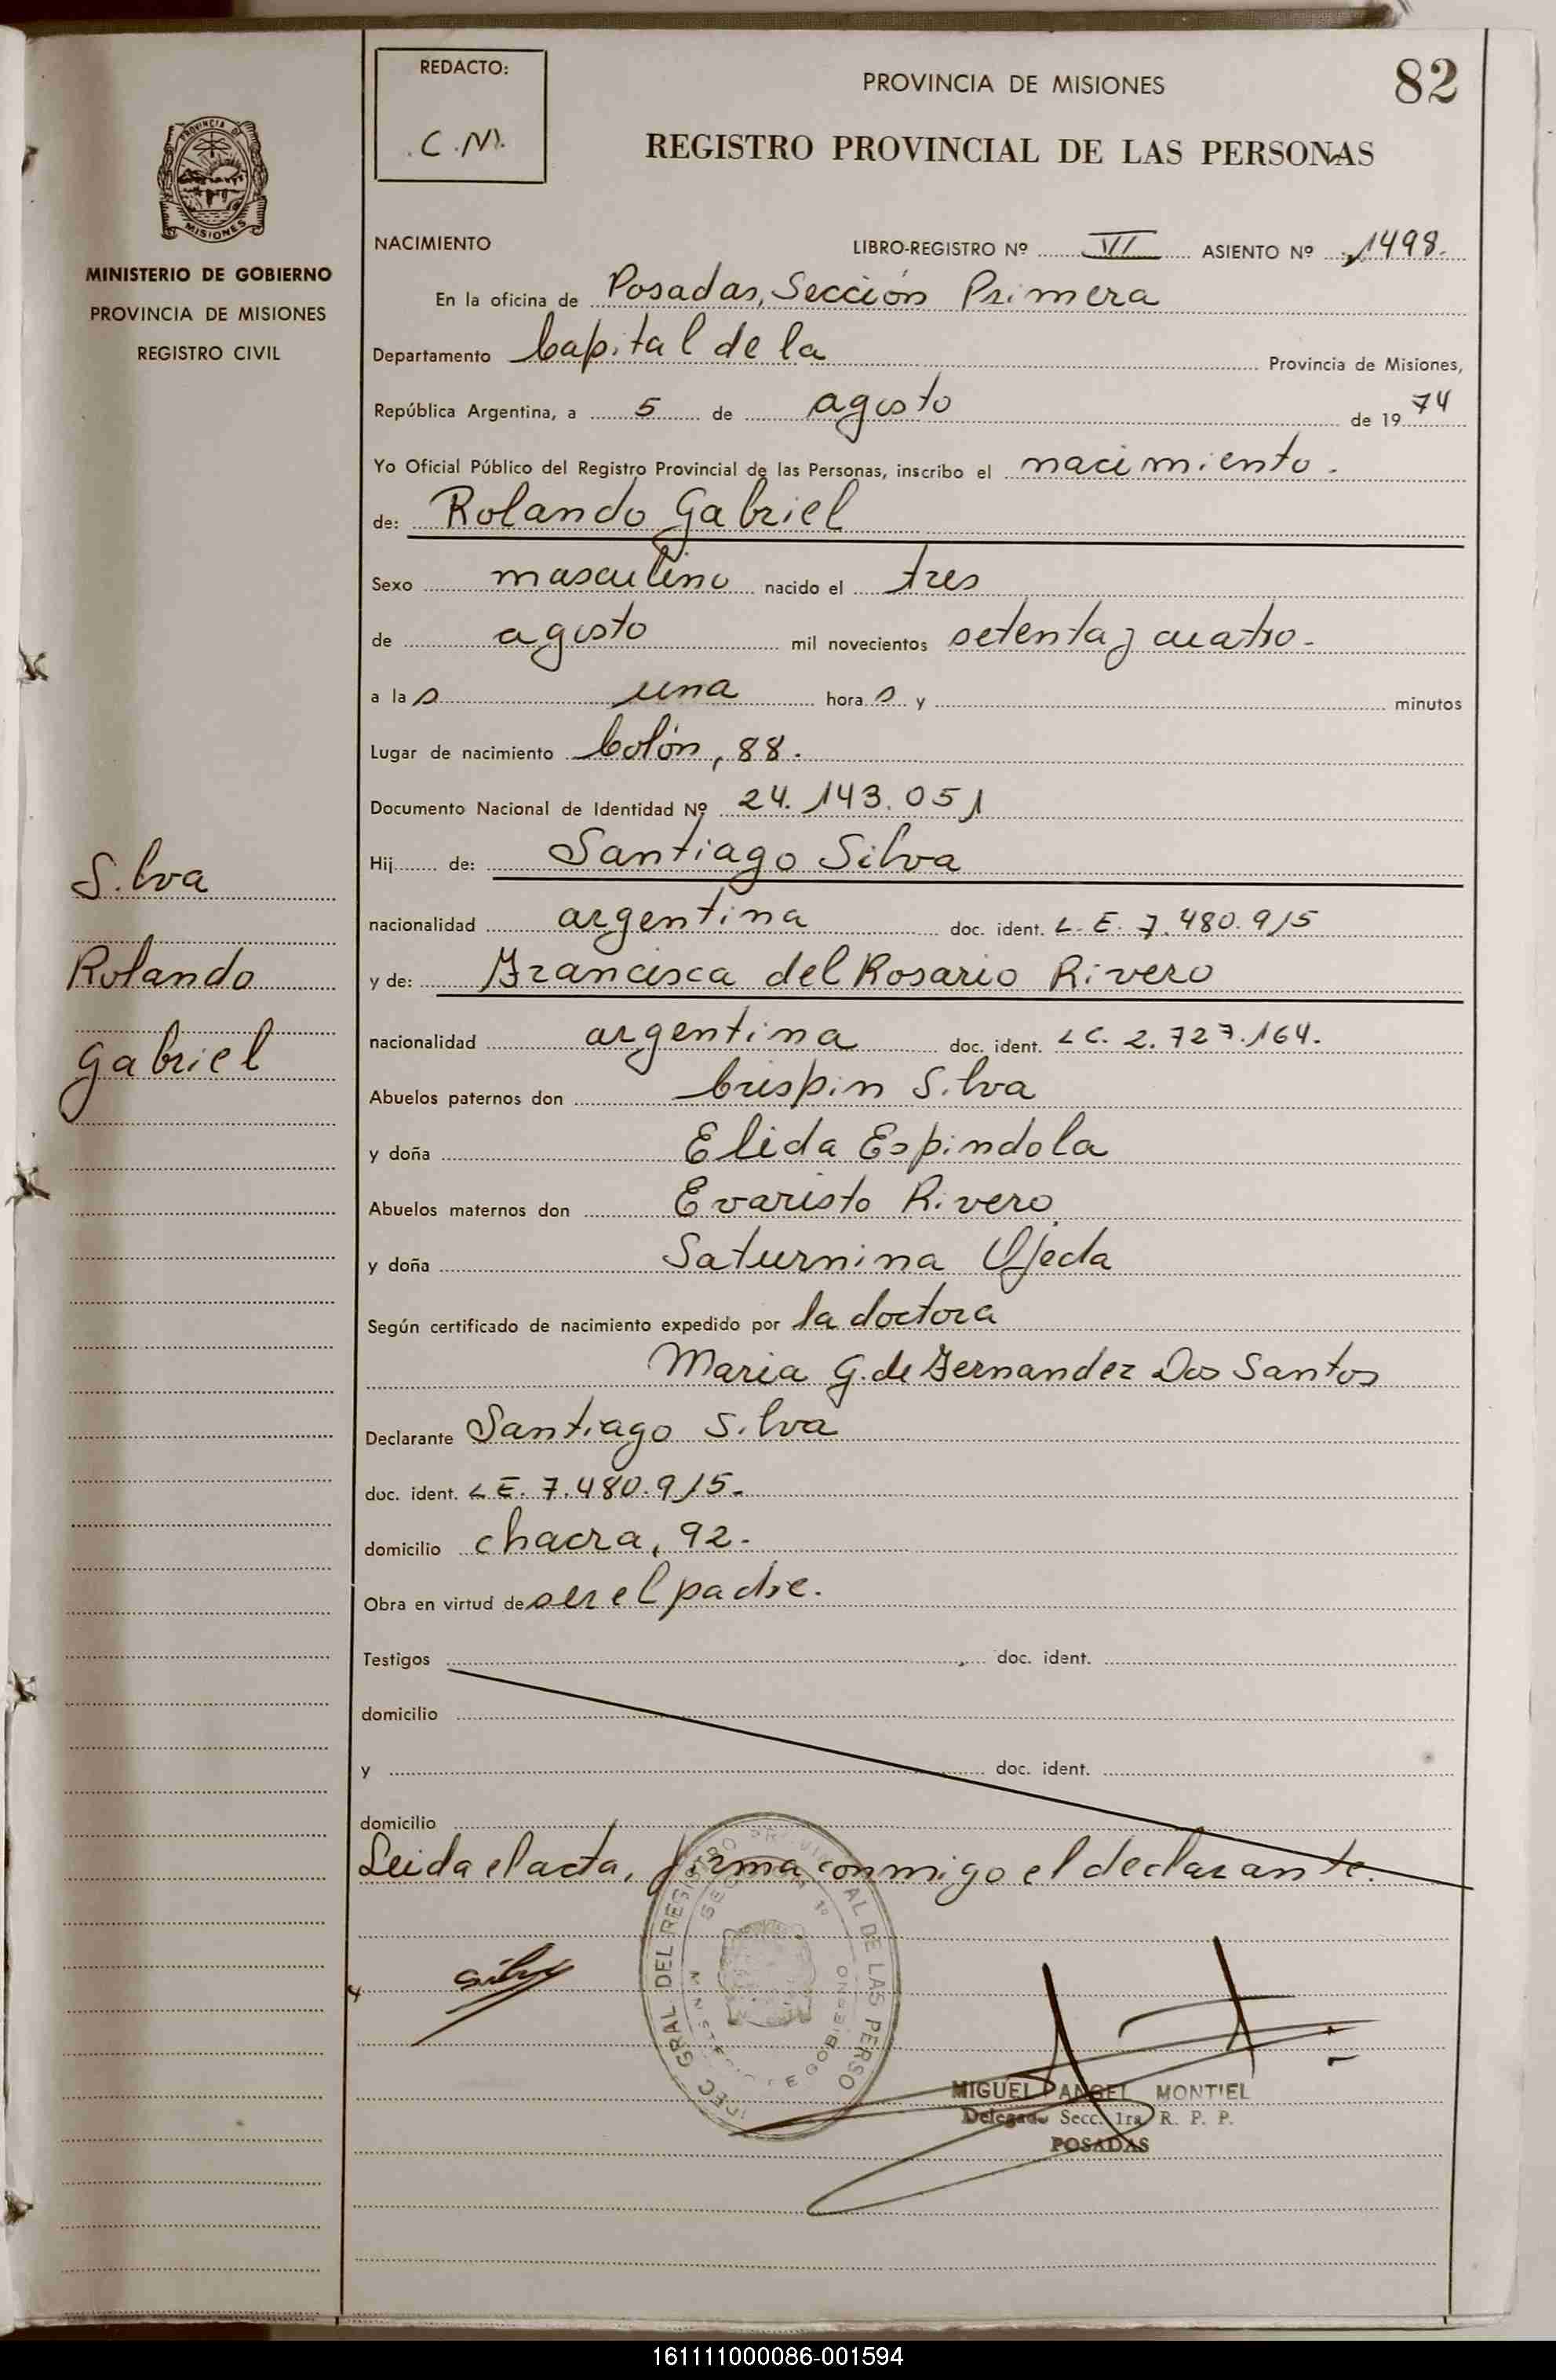 REDACTO:
C.M.
PROVINCIA DE MISIONES
82
REGISTRO PROVINCIAL DE LAS PERSONAS
PROVINCIA DE
MISIONES
MINISTERIO DE GOBIERNO
PROVINCIA DE MISIONES
REGISTRO CIVIL
NACIMIENTO LIBRO-REGISTRO Nº VI ASIENTO Nº 1498.
En la oficina de Posadas, Sección Primera
Departamento Capital de la Provincia de Misiones,
República Argentina, a 5 de agosto de 1974
Yo Oficial Público del Registro Provincial de las Personas, inscribo el nacimiento.
de: Rolando Gabriel
Sexo masculino nacido el tres
de agosto mil novecientos setenta y cuatro.
a las una horas y minutos
Lugar de nacimiento Colón, 88.
Documento Nacional de Identidad Nº 24.143.051
Hij de: Santiago Silva
nacionalidad argentina doc. ident. L.E. 7.480.915
y de: Francisca del Rosario Rivero
nacionalidad argentina doc. ident. LC. 2.727.164.
Abuelos paternos don Crispin Silva
y doña Elida Espindola
Abuelos maternos don Evaristo Rivero
y doña Saturnina Ojeda
Según certificado de nacimiento expedido por la doctora
Maria G. de Fernandez Dos Santos
Declarante Santiago Silva
doc. ident. L.E. 7.480.915.
domicilio chacra, 92.
Obra en virtud de ser el padre.
Testigos doc. ident.
domicilio
y doc. ident.
domicilio
Leida el acta, firma conmigo el declarante.
Silva
Rolando
Gabriel
Silva
GRAL DEL REGISTRO PROVINCIAL DE LAS PERSO
MIGUEL ANGEL MONTIEL
Delegado Secc. 1ra R. P. P.
POSADAS
161111000086-001594